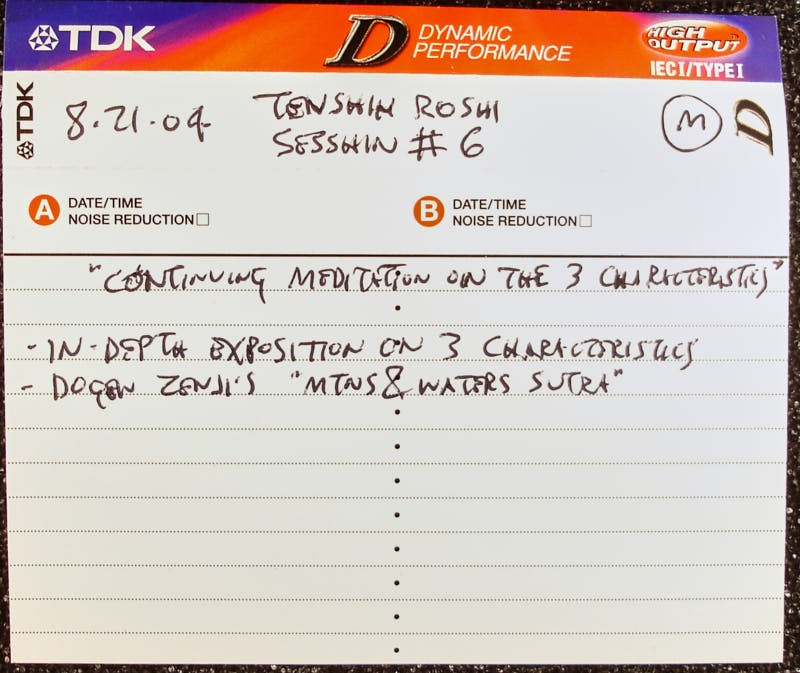 TDK
D DYNAMIC
PERFORMANCE
HIGH
OUTPUT
IECI/TYPEI
TDK
8.21.04 TENSHIN ROSHI M D
SESSHIN # 6
A DATE/TIME
NOISE REDUCTION
B DATE/TIME
NOISE REDUCTION
"CONTINUING MEDITATION ON THE 3 CHARACTERISTICS"
- IN-DEPTH EXPOSITION ON 3 CHARACTERISTICS
- DOGEN ZENJI'S "MTNS & WATERS SUTRA"